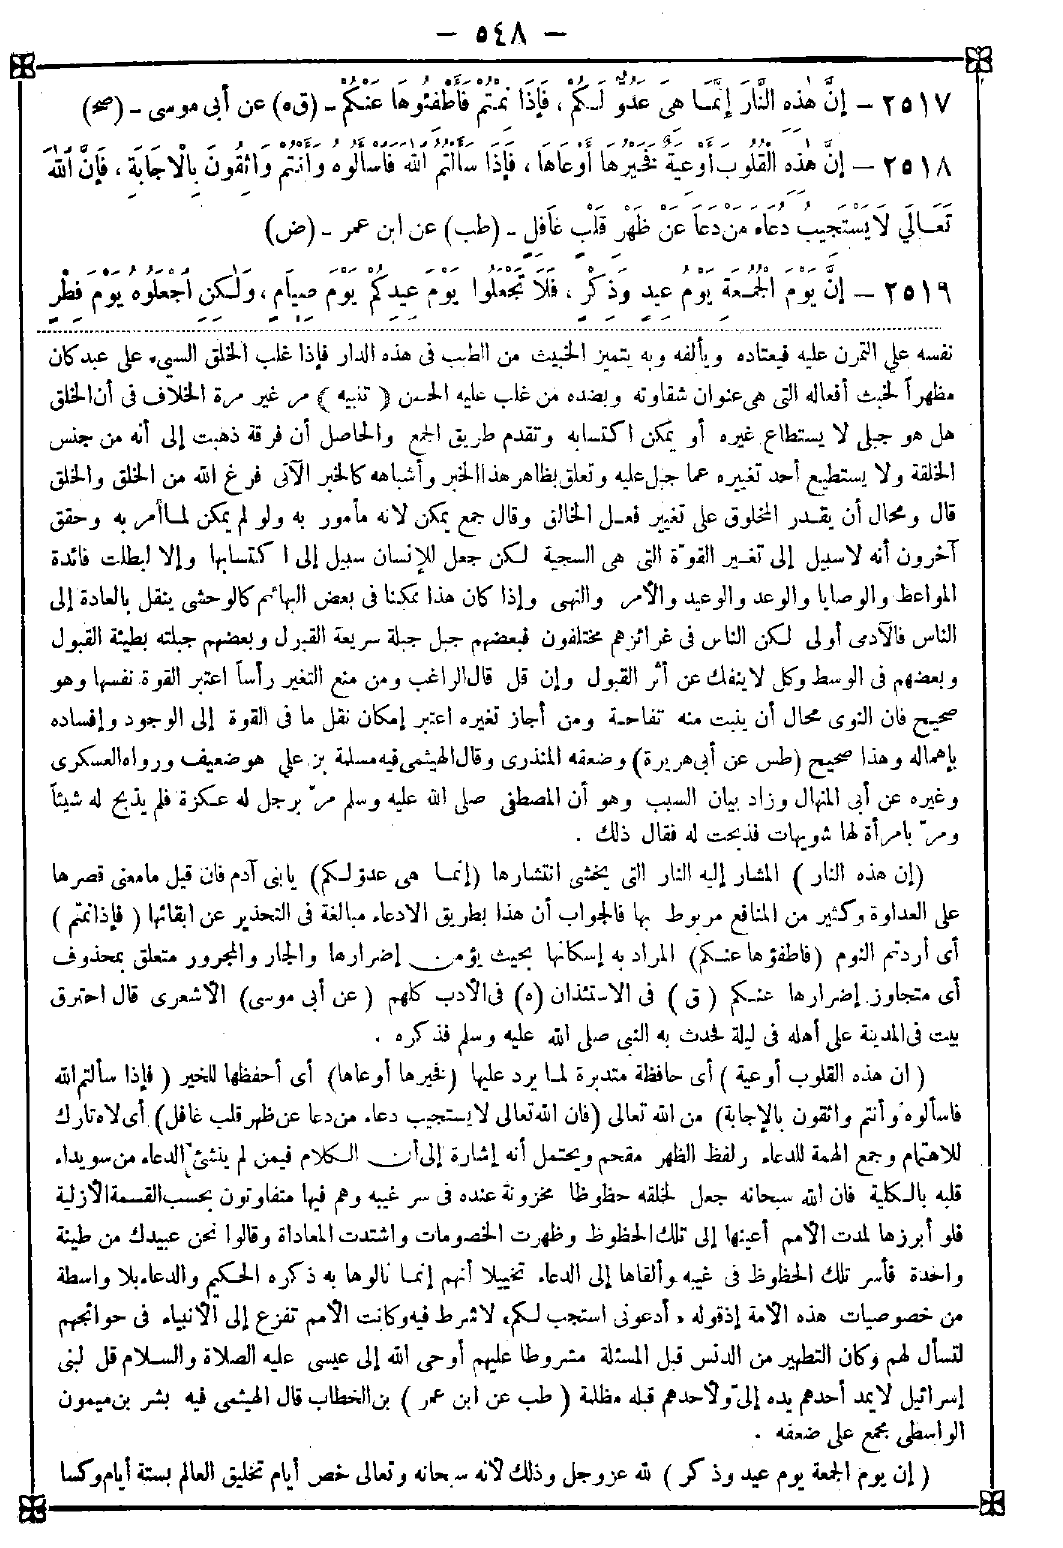 — ٥٤٨ —
٢٥١٧ — إِنَّ هٰذِهِ النَّارَ إِنَّمَا هِيَ عَدُوٌّ لَكُمْ ، فَإِذَا نِمْتُمْ فَأَطْفِئُوهَا عَنْكُمْ – (ق ه) عن أبى موسى – (صح)
٢٥١٨ — إِنَّ هٰذِهِ الْقُلُوبَ أَوْعِيَةٌ فَخَيْرُهَا أَوْعَاهَا ، فَإِذَا سَأَلْتُمُ اللهَ فَاسْأَلُوهُ وَأَنْتُمْ وَاثِقُونَ بِالْإِجَابَةِ ، فَإِنَّ اللهَ
تَعَالَى لَا يَسْتَجِيبُ دُعَاءَ مَنْ دَعَا عَنْ ظَهْرِ قَلْبٍ غَافِلٍ – (طب) عن ابن عمر – (ض)
٢٥١٩ — إِنَّ يَوْمَ الْجُمُعَةِ يَوْمُ عِيدٍ وَذِكْرٍ ، فَلَا تَجْعَلُوا يَوْمَ عِيدِكُمْ يَوْمَ صِيَامٍ ، وَلٰكِنِ اجْعَلُوهُ يَوْمَ فِطْرٍ
نفسه على التمرن عليه فيعتاده ويألفه وبه يتميز الخبيث من الطب فى هذه الدار فإذا غلب الخلق السيء على عبد كان
مظهراً لخبث أفعاله التى هى عنوان شقاوته وبضده من غلب عليه الحسن ( تنبيه ) مر غير مرة الخلاف فى أن الخلق
هل هو جبلى لا يستطاع غيره أو يمكن اكتسابه وتقدم طريق الجمع والحاصل أن فرقة ذهبت إلى أنه من جنس
الخلقة ولا يستطيع أحد تغييره عما جبل عليه وتعلق بظاهر هذا الخبر وأشباهه كالخبر الآتى فرغ الله من الخلق والخلق
قال ومحال أن يقدر المخلوق على تغيير فعل الخالق وقال جمع يمكن لانه مأمور به ولو لم يمكن لما أمر به وحقق
آخرون أنه لا سبيل إلى تغيير القوّة التى هى السجية لكن جعل للإنسان سبيل إلى اكتسابها وإلا لبطلت فائدة
المواعظ والوصايا والوعد والوعيد والأمر والنهى وإذا كان هذا ممكنا فى بعض البهائم كالوحشى ينقل بالعادة إلى
الناس فالآدمى أولى لكن الناس فى غرائزهم مختلفون فبعضهم جبل جبلة سريعة القبول وبعضهم جبلته بطيئة القبول
وبعضهم فى الوسط وكل لاينفك عن أثر القبول وإن قل قال الراغب ومن منع التغير رأساً اعتبر القوة نفسها وهو
صحيح فان النوى محال أن ينبت منه تفاحة ومن أجاز تغيره اعتبر إمكان نقل ما فى القوة إلى الوجود وإفساده
بإهماله وهذا صحيح (طس عن أبى هريرة) وضعفه المنذرى وقال الهيثمى فيه مسلمة بن على هو ضعيف ورواه العسكرى
وغيره عن أبى المنهال وزاد بيان السبب وهو أن المصطفى صلى الله عليه وسلم مرّ برجل له عكرة فلم يذبح له شيئاً
ومرّ بامرأة لها شويهات فذبحت له فقال ذلك .
(إن هذه النار ) المشار إليه النار التى يخشى انتشارها (إنما هى عدو لكم) يابنى آدم فان قيل مامعنى قصرها
على العداوة وكثير من المنافع مربوط بها فالجواب أن هذا بطريق الادعاء مبالغة فى التحذير عن ابقائها ( فإذا نمتم )
أى أردتم النوم (فاطفؤها عنكم) المراد به إسكانها بحيث يؤمن إضرارها والجار والمجرور متعلق بمحذوف
أى متجاوز إضرارها عنكم ( ق ) فى الاستئذان (ه) فى الأدب كلهم ( عن أبى موسى) الأشعرى قال احترق
بيت فى المدينة على أهله فى ليلة فحدث به النبى صلى الله عليه وسلم فذكره .
( ان هذه القلوب أوعية ) أى حافظة متدبرة لما يرد عليها (فخيرها أوعاها) أى أحفظها للخير ( فإذا سألتم الله
فاسألوه وأنتم واثقون بالإجابة) من الله تعالى (فان الله تعالى لايستجيب دعاء من دعا عن ظهر قلب غافل) أى لاه تارك
للاهتمام وجمع الهمة للدعاء ولفظ الظهر مقحم ويحتمل أنه إشارة إلى أن الكلام فيمن لم ينشئ الدعاء من سويداء
قلبه بالكلية فان الله سبحانه جعل لخلقه حظوظا مخزونة عنده فى سر غيبه وهم فيها متفاوتون بحسب القسمة الأزلية
فلو أبرزها لمدت الأمم أعينها إلى تلك الحظوظ وظهرت الخصومات واشتدت المعاداة وقالوا نحن عبيدك من طينة
واحدة فأسر تلك الحظوظ فى غيبه وألقاها إلى الدعاء تخييلا أنهم إنما نالوها به ذكره الحكيم والدعاء بلا واسطة
من خصوصيات هذه الأمة إذ قوله ، أدعونى استجب لكم، لا شرط فيه وكانت الأمم تفزع إلى الأنبياء فى حوائجهم
لتسأل لهم وكان التطهير من الدنس قبل المسئلة مشروطا عليهم أوحى الله إلى عيسى عليه الصلاة والسلام قل لبنى
إسرائيل لايمد أحدهم يده إلىّ ولأحدهم قبله مظلمة ( طب عن ابن عمر ) بن الخطاب قال الهيثمى فيه بشر بن ميمون
الواسطى مجمع على ضعفه .
( إن يوم الجمعة يوم عيد وذكر ) لله عز وجل وذلك لأنه سبحانه وتعالى خص أيام تخليق العالم بستة أيام وكسا